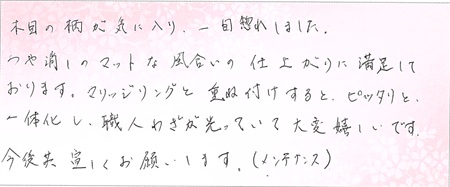 木目の柄が気に入り、一目惚れしました。
つや消しのマットな風合いの仕上がりに満足して
おります。マリッジリングと重ね付けすると、ピッタリと、
一体化し、職人わざが光っていて大変嬉しいです。
今後共宜しくお願いします。(メンテナンス)